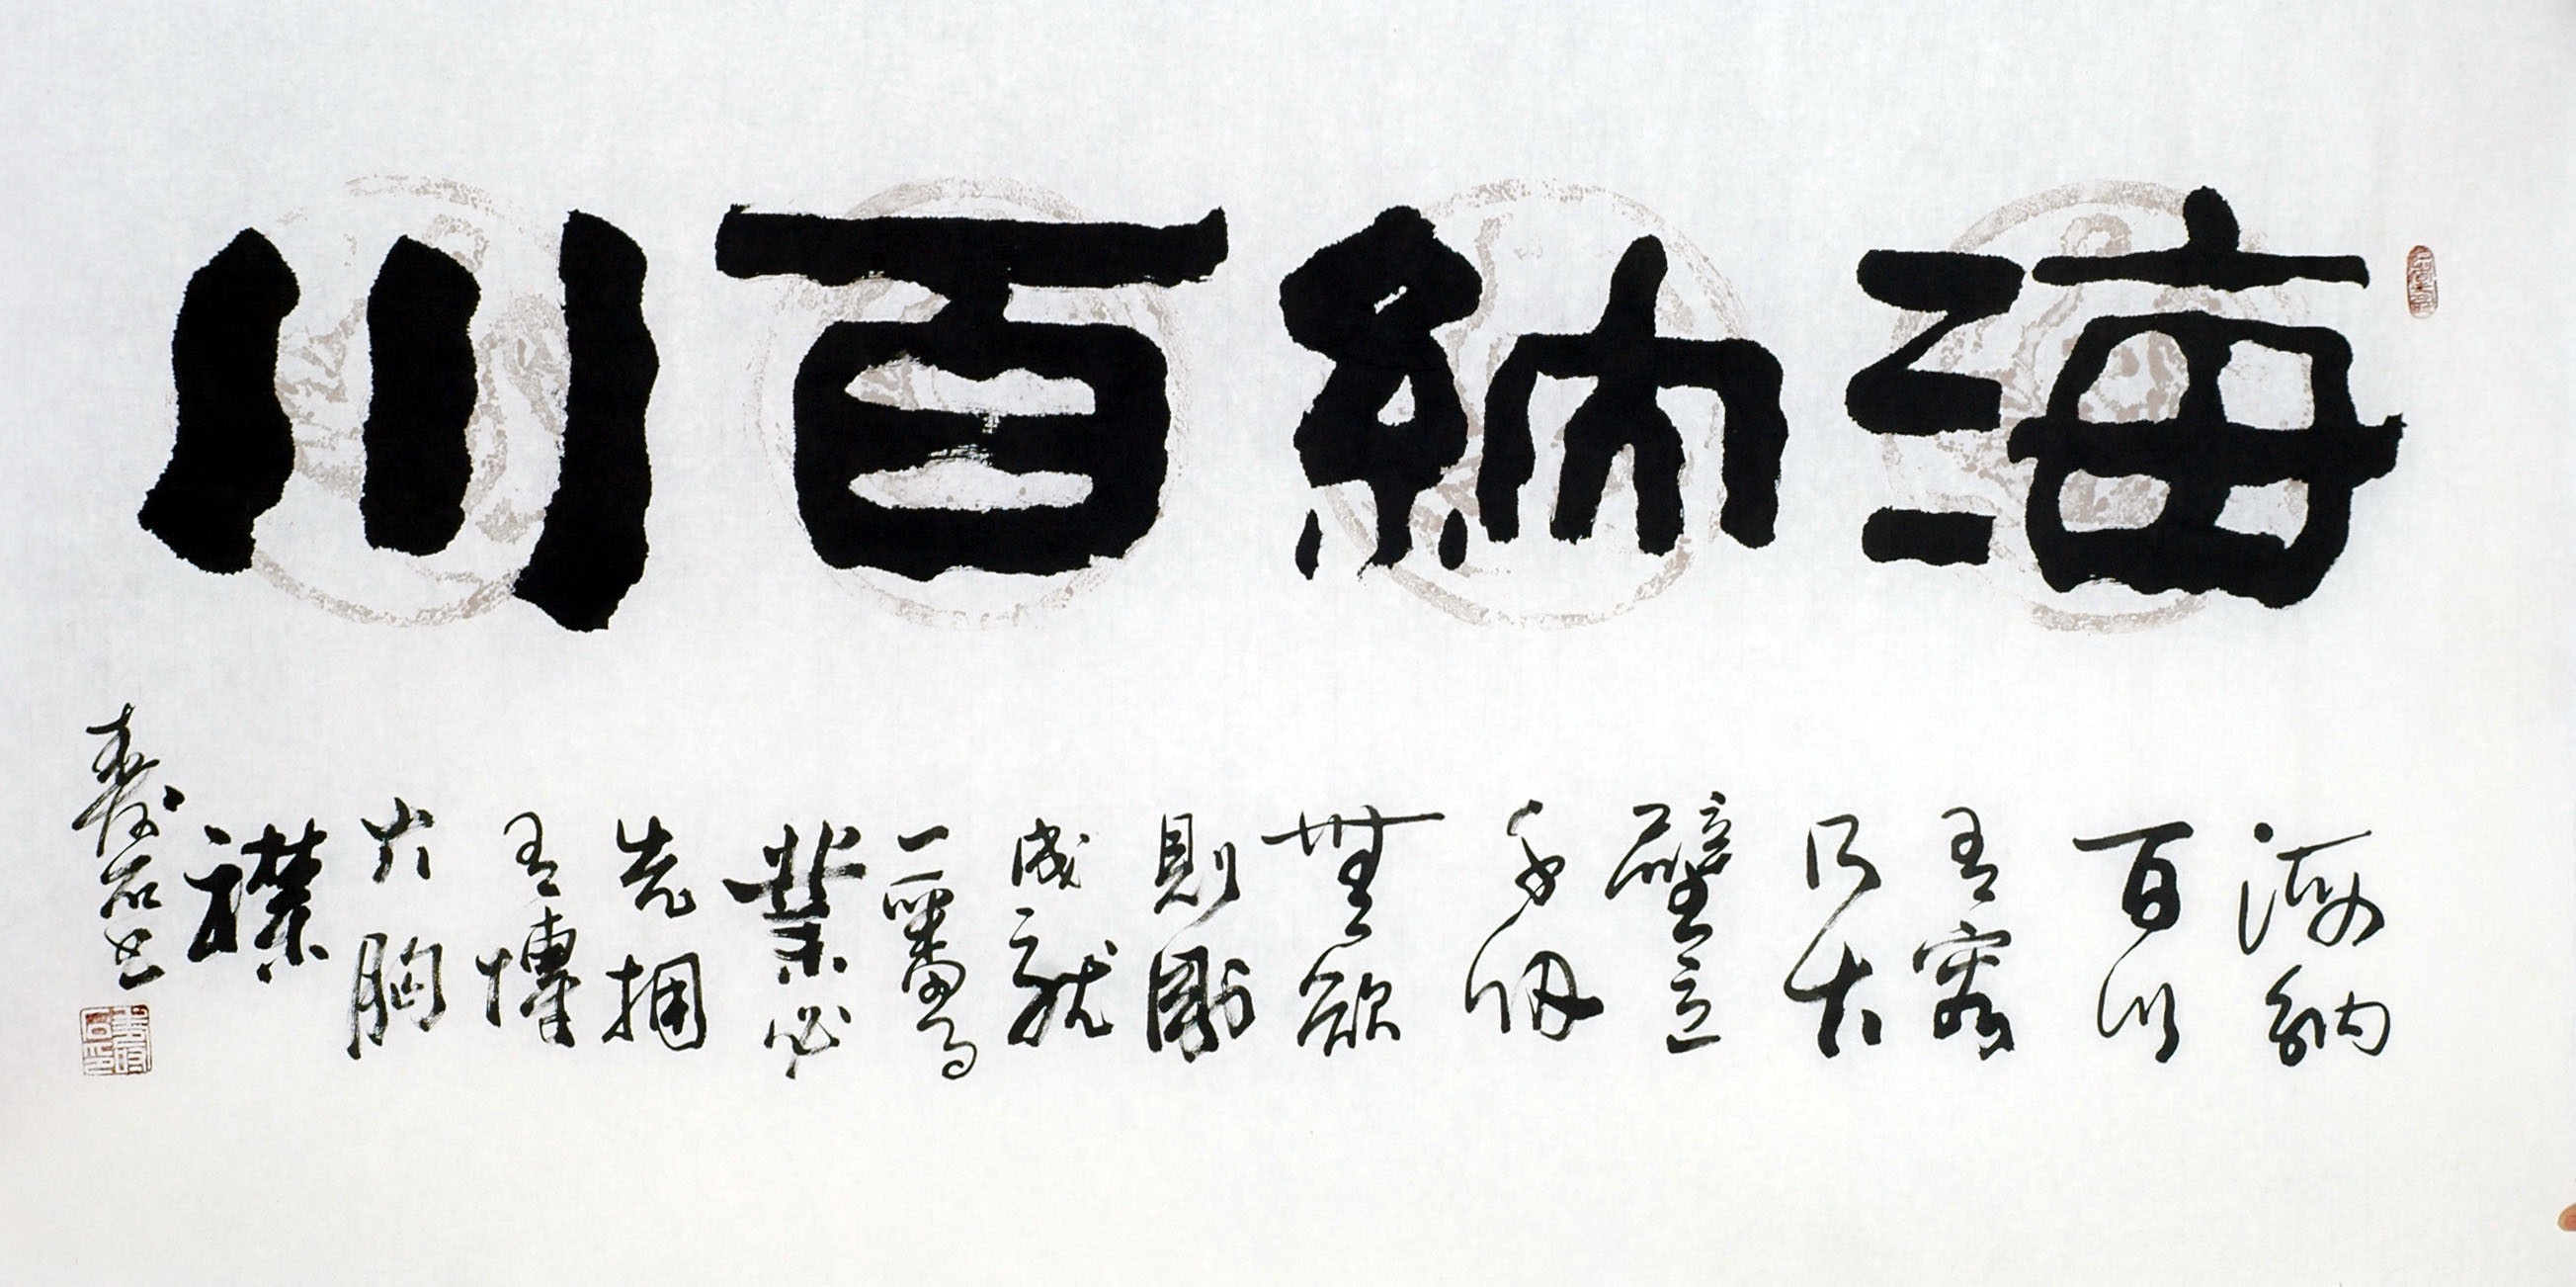 海納百川
海納
百川
有容
乃大
壁立
千仞
無欲
則剛
成就
一番事
業必
先拥
有博
大胸
襟
石书